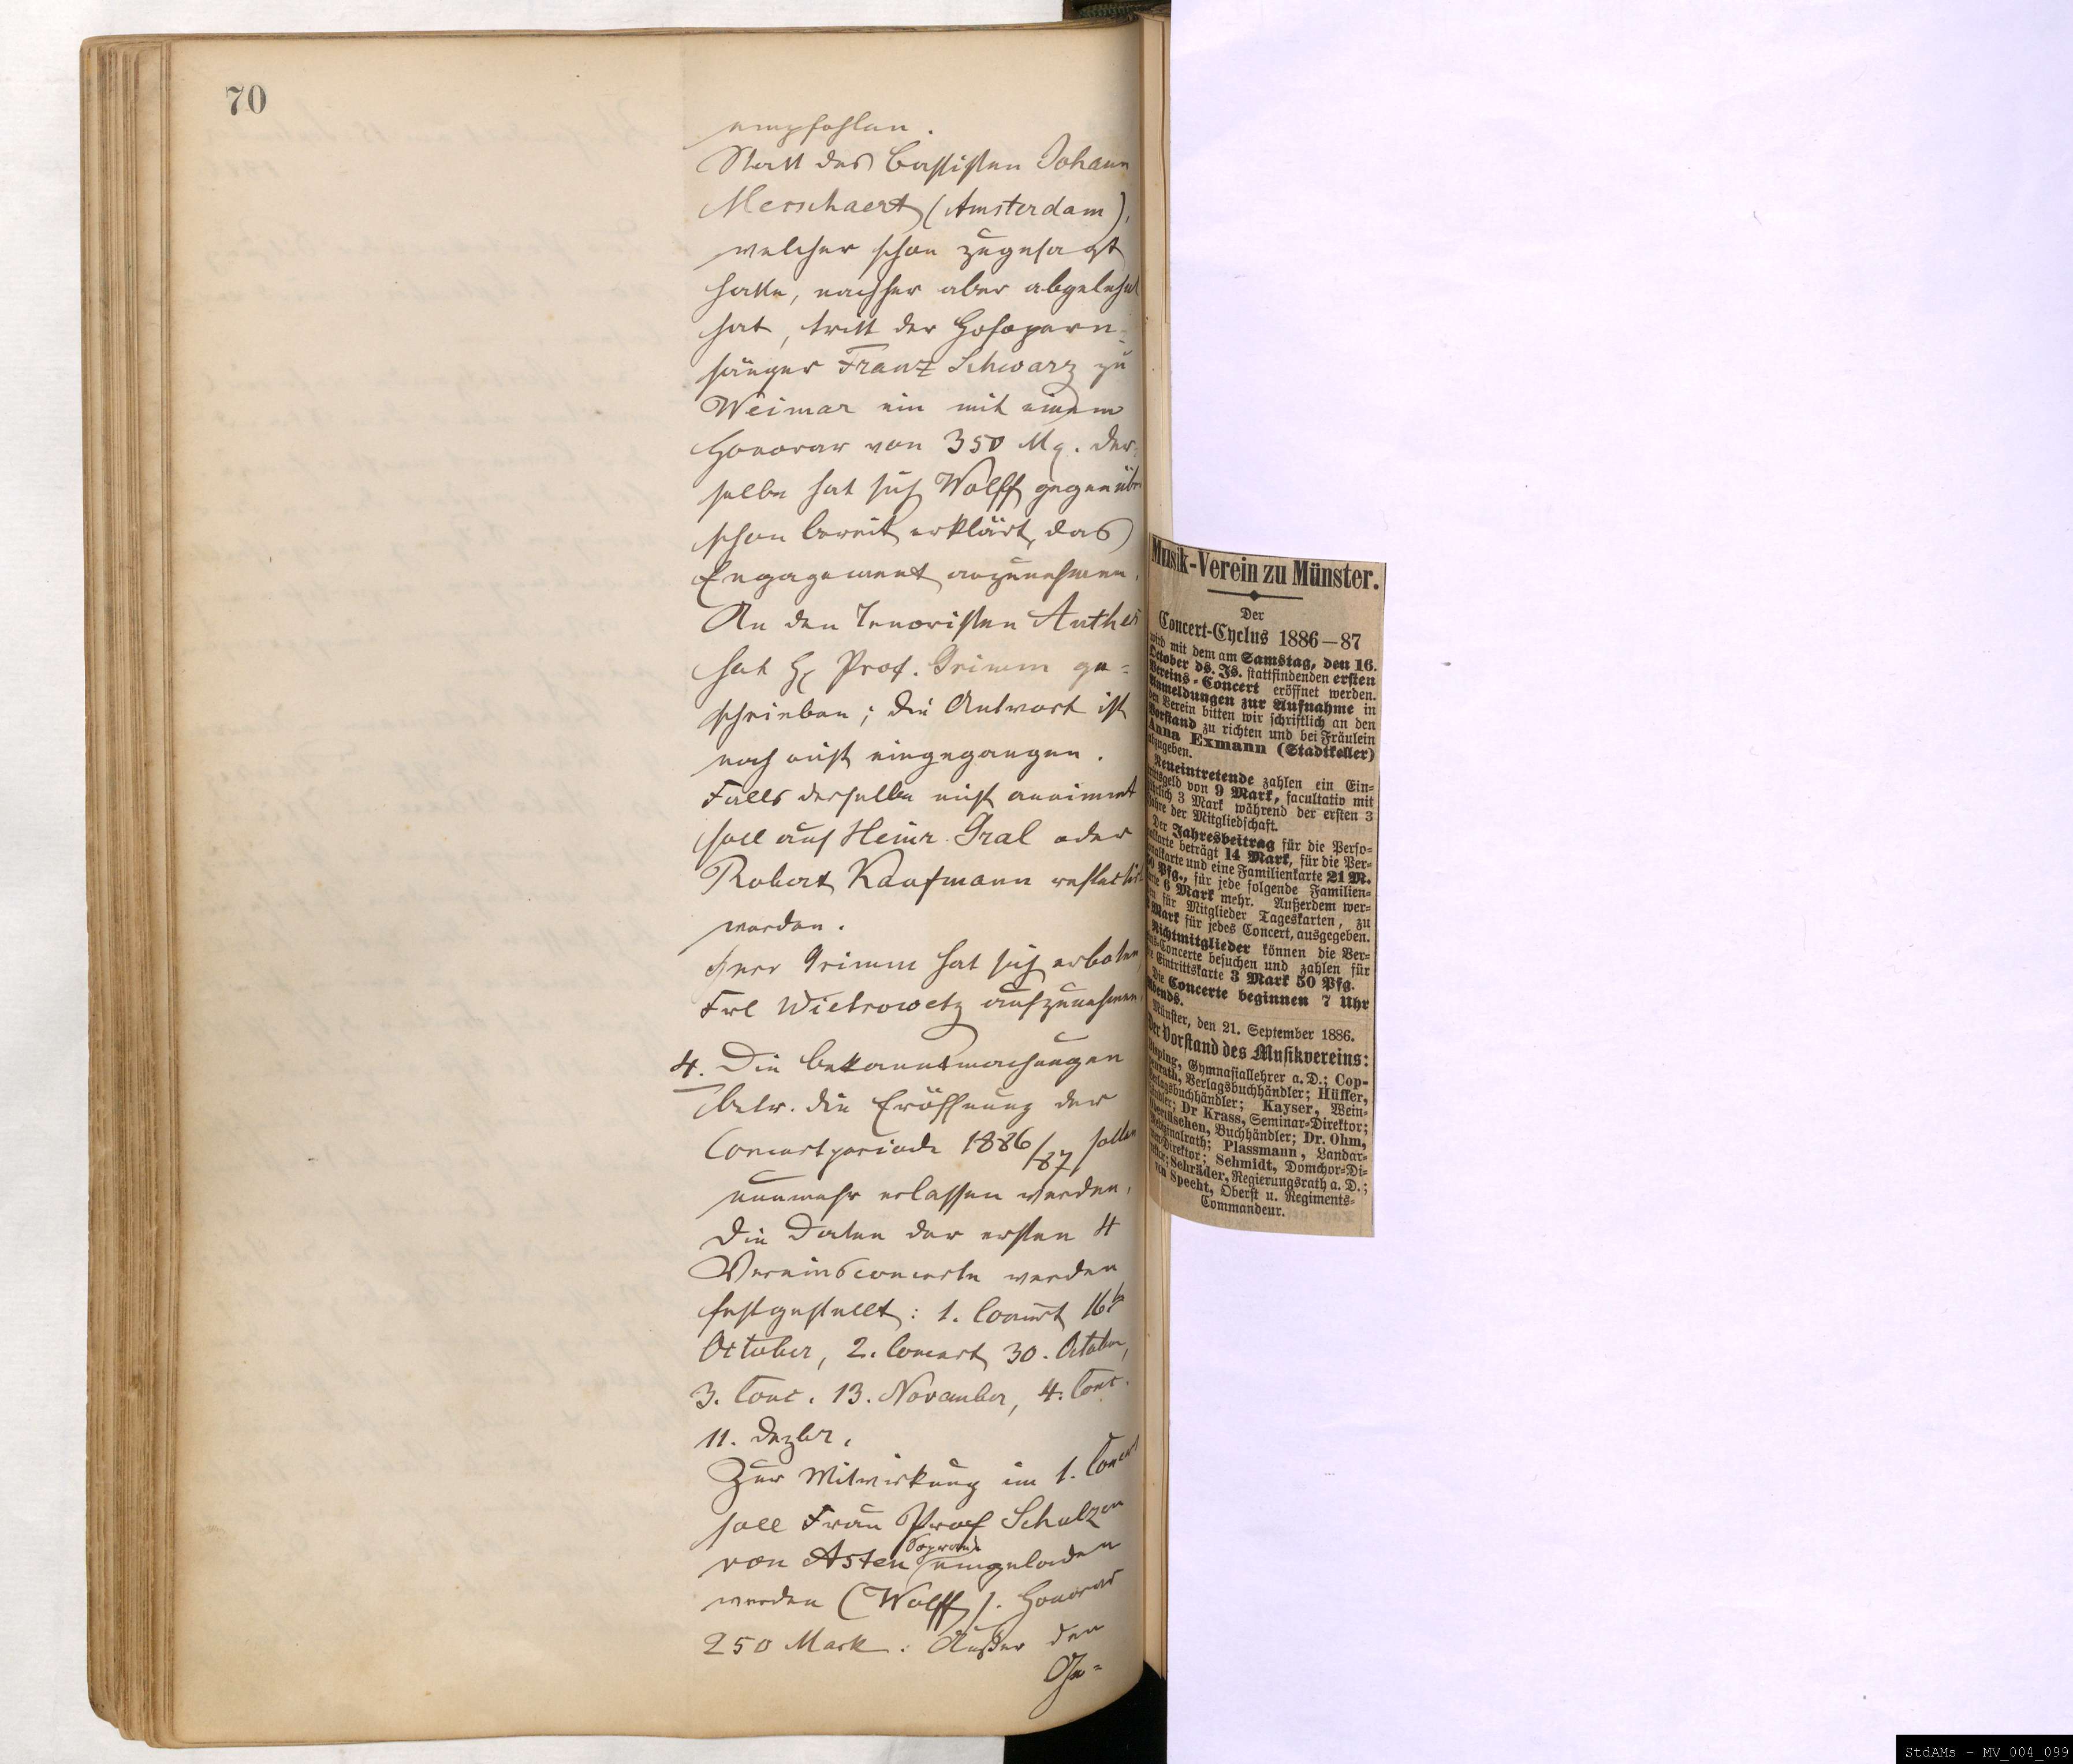 70
empfohlen.
Statt des Bassisten Johann
Messchaert (Amsterdam),
welcher schon zugesagt
hatte, nachher aber abgelehnt
hat, tritt der Hofopern-
sänger Franz Schwarz zu
Weimar ein mit einem
Honorar von 350 Mq. Der-
selbe hat sich Wolff gegenüber
schon bereit erklärt, das
Engagement anzunehmen.
An den Tenoristen Anthes
hat H Prof. Grimm ge=
schrieben; die Antwort ist
noch nicht eingegangen.
Falls derselbe nicht annimmt
soll auf Heinr. Gral oder
Robert Kaufmann reflectirt
werden.
Herr Grimm hat sich erboten,
Frl Wietrowetz aufzunehmen.
4. Die Bekanntmachungen
betr. die Eröffnung der
Concertperiode 1886/87 sollen
nunmehr erlassen werden.
Die Daten der ersten 4
Vereinsconcerte werden
festgestellt: 1. Concert 16.
October, 2. Concert 30. October,
3. Conc. 13. November, 4. Conc.
11. Dezbr.
Zur Mitwirkung im 1. Concert
soll Frau Prof Schulzen
von Asten (Sopran) eingeladen
werden (Wolff). Honorar
250 Mark. Außer den
Ge=
Musik-Verein zu Münster.
Der
Concert-Cyclus 1886—87
wird mit dem am Samstag, den 16.
October ds. Js. stattfindenden ersten
Vereins-Concert eröffnet werden.
Anmeldungen zur Aufnahme in
den Verein bitten wir schriftlich an den
Vorstand zu richten und bei Fräulein
Anna Exmann (Stadtkeller)
abzugeben.
Neueintretende zahlen ein Ein=
trittsgeld von 9 Mark, facultativ mit
jährlich 3 Mark während der ersten 3
Jahre der Mitgliedschaft.
Der Jahresbeitrag für die Perso=
nalkarte beträgt 14 Mark, für die Per=
sonalkarte und eine Familienkarte 21 M.
50 Pfg., für jede folgende Familien=
karte 6 Mark mehr. Außerdem wer=
den für Mitglieder Tageskarten, zu
Mark für jedes Concert, ausgegeben.
Nichtmitglieder können die Ver=
eins-Concerte besuchen und zahlen für
die Eintrittskarte 3 Mark 50 Pfg.
Die Concerte beginnen 7 Uhr
Abends.
Münster, den 21. September 1886.
Der Vorstand des Musikvereins:
Bisping, Gymnasiallehrer a. D.; Cop-
penrath, Verlagsbuchhändler; Hüffer,
Verlagsbuchhändler; Kayser, Wein=
händler; Dr Krass, Seminar=Direktor;
Obertüschen, Buchhändler; Dr. Ohm,
Medizinalrath; Plassmann, Landar=
men=Direktor; Schmidt, Domchor=Di=
rektor; Schräder, Regierungsrath a. D.;
von Specht, Oberst u. Regiments=
Commandeur.
StdAMs - MV_004_099